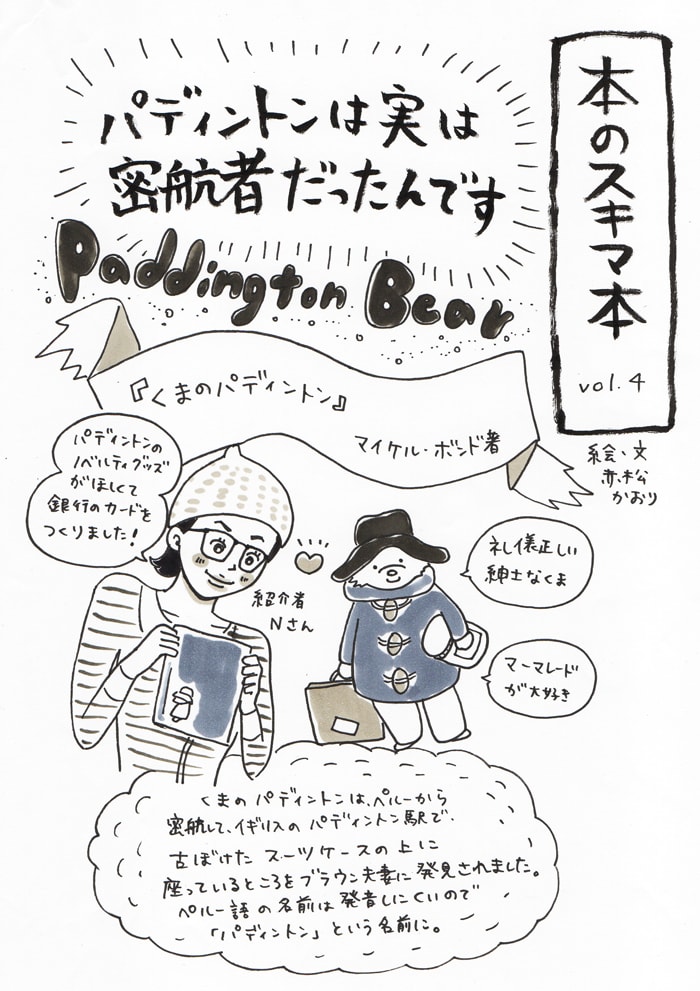 本のスキマ本
vol.4
絵・文
赤松
かおり
パディントンは実は
密航者だったんです
Paddington Bear
『くまのパディントン』
マイケル・ボンド著
パディントンの
ノベルティグッズ
がほしくて
銀行のカードを
つくりました!
紹介者
Nさん
礼儀正しい
紳士なくま
マーマレード
が大好き
くまのパディントンは、ペルーから
密航して、イギリスのパディントン駅で、
古ぼけたスーツケースの上に
座っているところをブラウン夫妻に発見されました。
ペルー語の名前は発音しにくいので
「パディントン」という名前に。